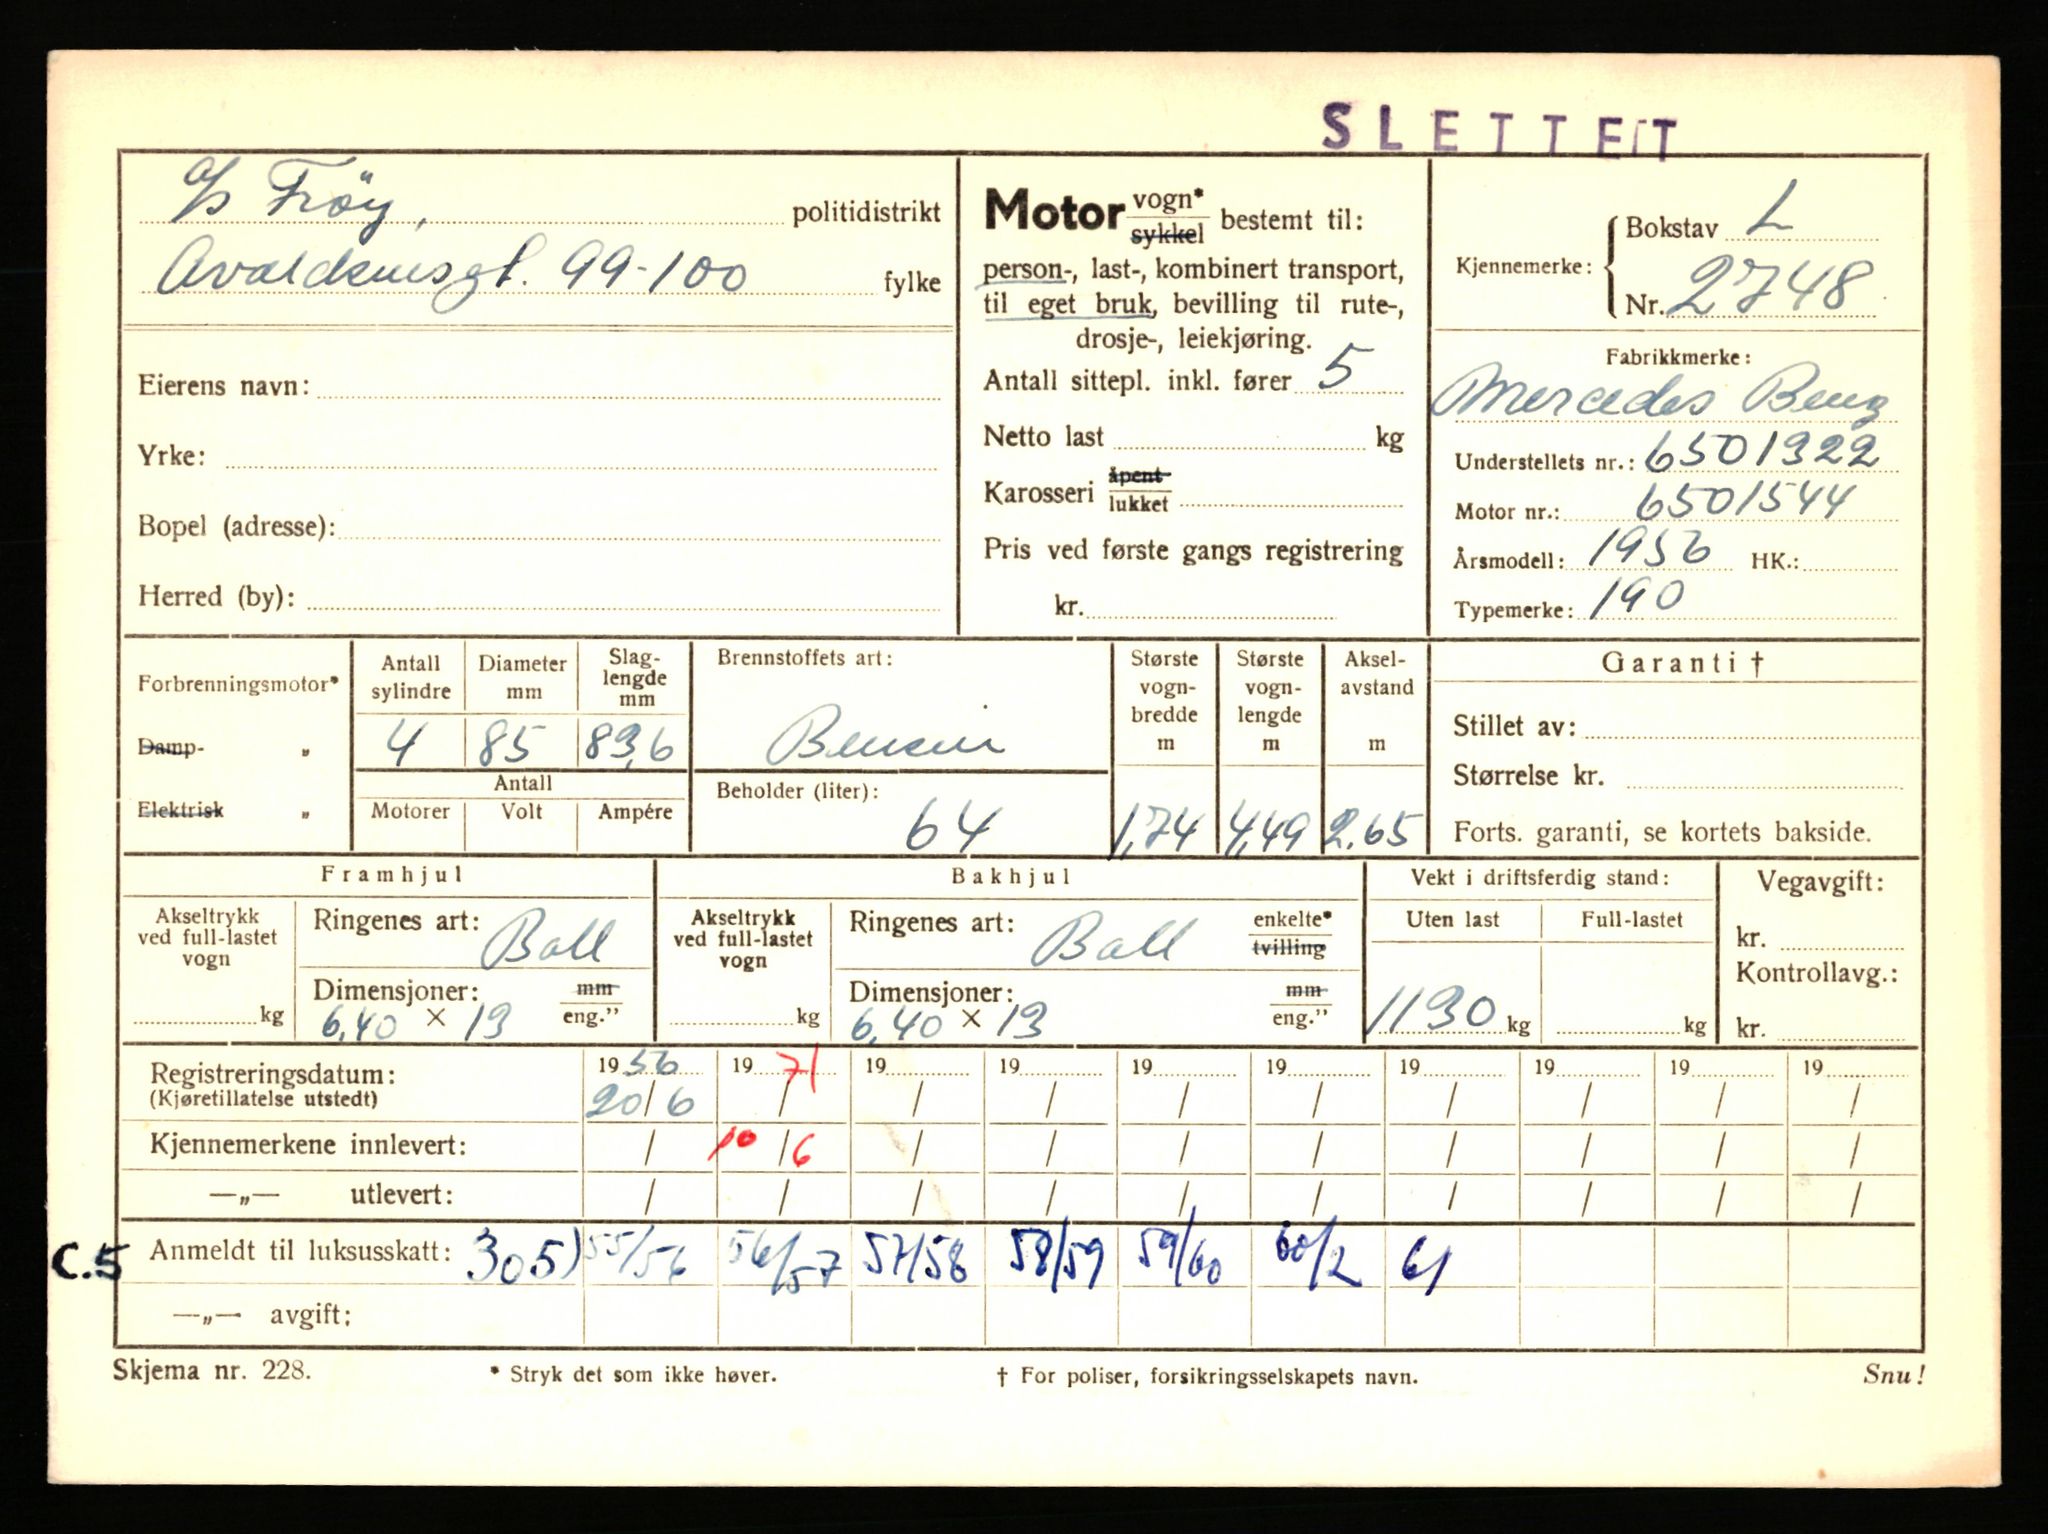 SLETTET
A/S Fröy, politidistrikt
Avaldsnesgt. 99-100 fylke
Eierens navn:
Yrke:
Bopel (adresse):
Herred (by):
Motor vogn* sykkel bestemt til:
person-, last-, kombinert transport,
til eget bruk, bevilling til rute-,
drosje-, leiekjøring.
Antall sittepl. inkl. fører 5
Netto last kg
Karosseri åpent lukket
Pris ved første gangs registrering
kr.
Kjennemerke: Bokstav L
Nr. 2748
Fabrikkmerke:
Mercedes Benz
Understellets nr.: 6501322
Motor nr.: 6501544
Årsmodell: 1956 HK.:
Typemerke: 190
Forbrenningsmotor*
Damp- "
Elektrisk "
Antall sylindre 4
Diameter mm 85
Slag-lengde mm 83,6
Antall
Motorer Volt Ampére
Brennstoffets art:
Bensin
Beholder (liter):
64
Største vogn-bredde m 1,74
Største vogn-lengde m 4,49
Aksel-avstand m 2.65
Garanti †
Stillet av:
Størrelse kr.
Forts. garanti, se kortets bakside.
Framhjul
Akseltrykk ved full-lastet vogn kg
Ringenes art: Ball
Dimensjoner: mm
6,40 × 13 eng."
Bakhjul
Akseltrykk ved full-lastet vogn kg
Ringenes art: Ball enkelte* tvilling
Dimensjoner: mm
6,40 × 13 eng."
Vekt i driftsferdig stand:
Uten last Full-lastet
1130 kg kg
Vegavgift:
kr.
Kontrollavg.:
kr.
Registreringsdatum: 1956 1971 19 19 19 19 19 19 19 19
(Kjøretillatelse utstedt) 20/6 / / / / / / / / /
Kjennemerkene innlevert: / 10/6 / / / / / / / /
—„— utlevert: / / / / / / / / / /
C.5 Anmeldt til luksusskatt: 305) 55/56 56/57 57/58 58/59 59/60 60/2 61
—„— avgift:
Skjema nr. 228. * Stryk det som ikke høver. † For poliser, forsikringsselskapets navn. Snu!